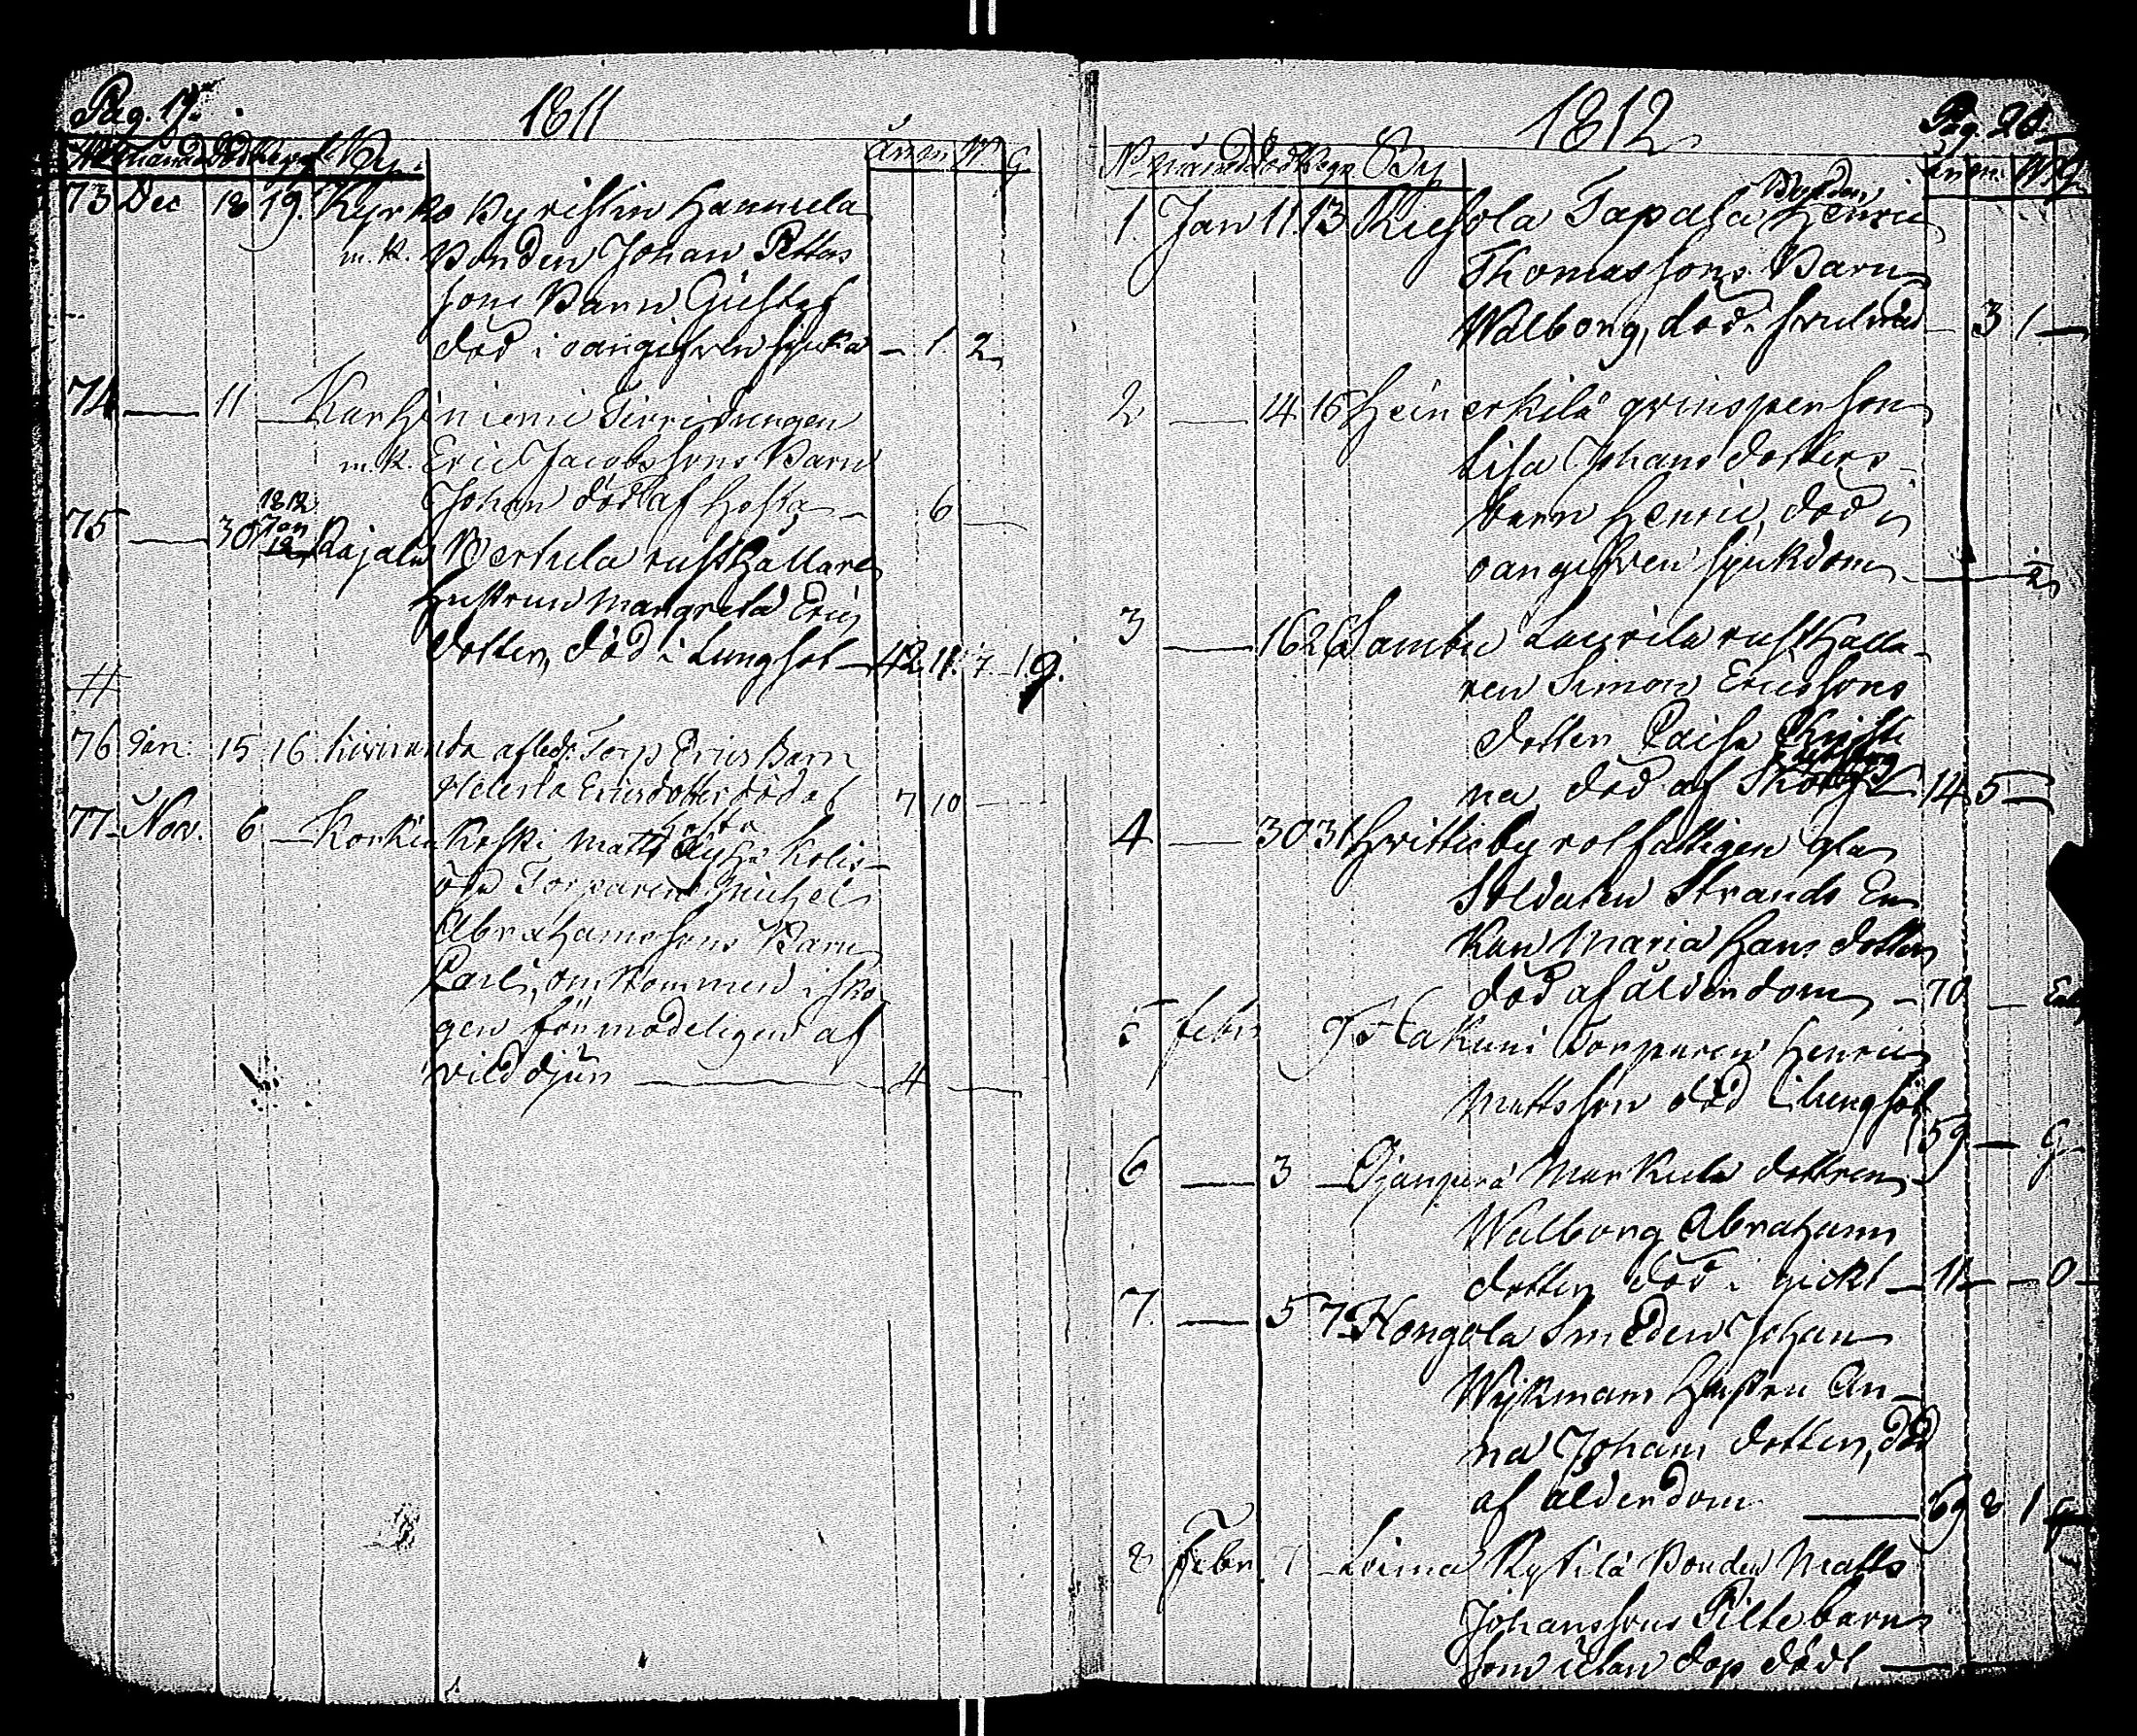 Pag. 19. 1811
No månad Död Begr. By. År m. W. G
73 Dec 18 19. Kyrko Kyristin Hannula
m. k. Bonden Johan Petters
sons Barn Gustaf
död i oangifven sjukd – 1. 2
74 — 11 — Karhiniemi
m. k. Eric Jacobssons Barn
Johan död af Hosta – 6 —
75 — 30 1812 Jan 12 Raijala Bertula rusthållare
Hustrun Margreta Erics
dotter, död i Lungsot — 42 11. 7. – 1. g.
#
76 Jan: 15 16. Kiviranda afledr. Torp Erics Barn
Helena Ericsdotter död af
hosta 7 10 —
77 Nov. 6 — Korkia Koski Matts
Torparens Michel
Abrahamssons Barn
Carl, omkommen i sko-
gen förmodeligen af
vilddjur — 4 —
1812 Pag. 20
No månad död Begr By År m. W. G.
1. Jan 11. 13 Kiesola Tapala Bonden Henric
Thomassons Barn
Walborg, död i — 3 1 —
2 — 14 15 Hein erkilä qvinsperson
Lisa Johans dotters
barn Henric, död i
oangifven sjukdom — 2
3 — 16 26 Sambu Laurila rusthålla-
ren Simon Ericssons
dotter Caisa Kristi
na, död af 14 5 —
4 — 30 31 Hvittisby rotfattigen gla
Soldaten Strands En
kan Maria Hans dotter
död af ålderdom – 70 — Enk
5 Febr Takuni Torparen Henric
Mattsson död i lungsot
59 — g
6 — 3 — Ojanperä Markula dottren
Walborg Abrahams
dotter död i gickt – 11 — — O
7. — 5 7 Hongola Smeden Johan
Wijkmans Hustru An-
na Johans dotter, död
af ålderdom — 69 8 1 g
8 Febr. 7 – Leima Kytilä Bonden Matts
Johanssons Piltebarn
som utan dop dödt —